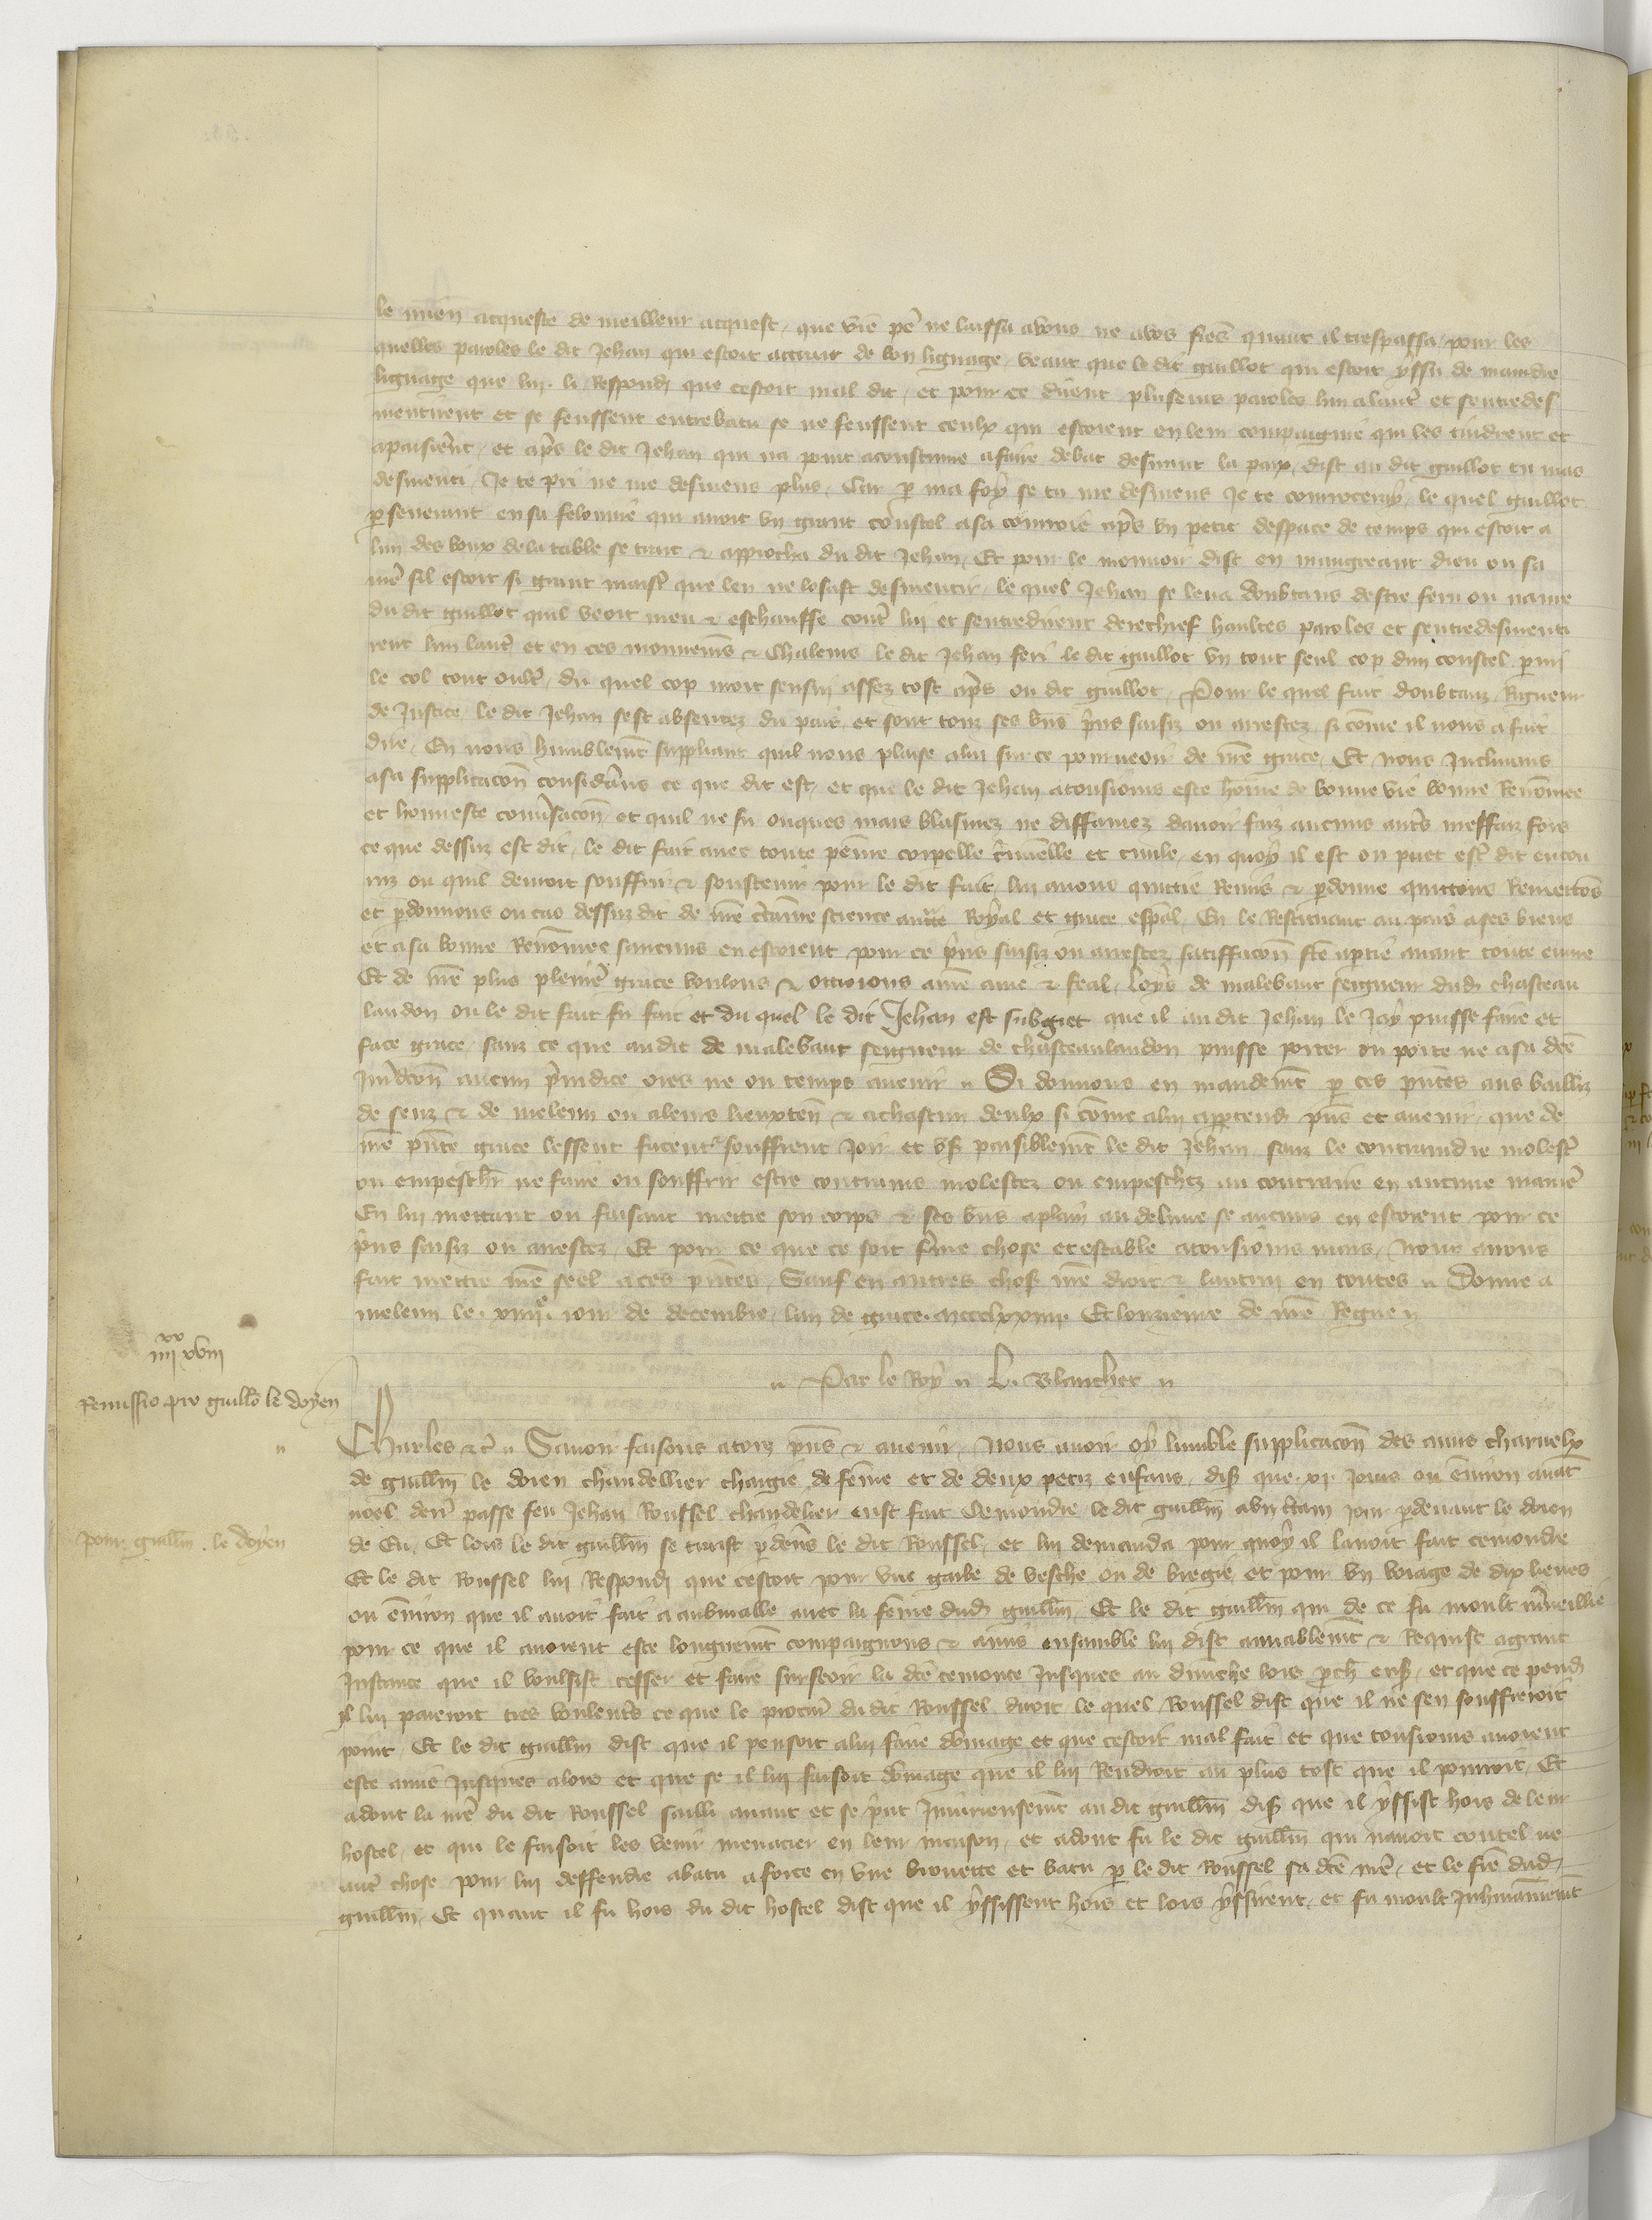 le mien acqueste de meilleur acquest, que vre pe ne laissa a vous ne a vos freres quant il trespassa, pour les
quelles paroles le dit Jehan qui estoit attrait de bon lignage, veant que le dit guillot qui estoit yssu de maindre
lignage que lui. li respondi que cestoit mal dit, et pour ce dirent pluseurs paroles lun a lautre et sentredes
mentirent et se feussent entrebatu se ne feussent ceulx qui estoient en leur compaignie qui les tindrent et
apaisierent, et apres le dit Jehan qui na point acoustume a faire debat desirant la paix, dist au dit guillot tu mas
desmenti, Je te pri ne me desmens plus, Car par ma foy se tu me desmens Je te courroceray, le quel guillot
perseverant en sa felonnie qui avoit un grant coustel a sa couroie apres un petit despace de temps qui estoit a
lun des boux de la table se trait & approcha du dit Jehan, Et pour le mouvoir dist en maugreant dieu ou sa
mere sil estoit si grant maistre que len ne losast desmentir, le quel Jehan se leva doubtans destre feru ou navre
du dit guillot quil veoit meu & eschauffe contre lui et sentredirent derechief haultes paroles et sentredesmenti
rent lun lautre et en ces mouvemens & chaleurs le dit Jehan feri le dit guillot un tout seul cop dun coustel parmi
le col tout oultre, du quel cop mort sensui assez tost apres ou dit guillot, Pour le quel fait doubtant rigueur
de justice, le dit Jehan sest absentez du pais, et sont touz ses biens prins saisiz ou arrestez, si comme il nous a fait
dire, En nous humblement suppliant quil nous plaise a lui sur ce pourveoir de nre grace, Et Nous Inclinans
a sa supplicacion considerans ce que dit est, et que le dit Jehan a tousiours este homme de bonne vie bonne renommee
et honneste conversacion et quil ne fu onques mais blasmez ne diffamez davoir faiz aucuns autres meffaiz fors
ce que dessus est dit, le dit fait avec toute peine corporelle criminelle et civile, en quoy il est ou puet estre dit encou
ruz ou quil devroit souffrir & soustenir pour le dit fait, lui avons quittie remis & pardonne quittons remettons
et pardonnons ou cas dessuz dit de nre certaine science auctorite royal et grace especial, En le restituant au pais a ses biens
et a sa bonne renommee saucuns en estoient pour ce prins saisiz ou arrestez, satiffacion faite a partie avant toute euvre
Et de nre plus pleniere grace voulons & ottroions a nre ame & feal, loys de malevaut seigneur dudit chasteau
landon ou le dit fait fu fait et du quel le dit Jehan est subgiet que il au dit Jehan le Jay puisse faire et
face grace, sanz ce que au dit de malevaut seigneur de chasteaulandon puisse porter ou porte ne a sa dicte
Juridicion aucun preiudice ores ne ou temps avenir. Si donnons en mandement par ces presentes aus bailliz
de senz & de meleun ou a leurs lieuxtenens & a chascun deulx si comme a lui appartendra presens et avenir, que de
nre presente grace lessent facent & souffrent Joir et user paisiblement le dit Jehan, sanz le contraindre molester
ou empescher ne faire ou souffrir estre contrains molestez ou empeschez au contraire en aucune maniere
En lui mettant ou faisant mettre son corps & ses biens a plain au delivre se aucuns en estoient pour ce
prins saisiz ou arrestez, Et pour ce que ce soit ferme chose et estable a tousiours mais, Nous avons
fait mettre nre seel a ces presentes, Sauf en autres choses nre droit & lautrui en toutes. Donne a
meleun le xiiiie iour de decembre, lan de grace mccclxxiiii. Et lonzieme de nre Regne
Par le Roy L. Blanchet
iiii xx xviii
Remissio pro guillo le doyen
Charles &c. Savoir faisons a touz presens & avenir, Nous avoir oy lumble supplicacion des amis charnelx
pour guillm. le doyen
de guillm le doien chandellier chargie de femme et de deux petiz enfans, disans que xv Jours ou environ avant
noel derrenier passe feu Jehan Roussel chandelier eust fait semondre le dit guillm a un certain jour par devant le doien
de Eu, Et lors le dit guillm se traist par devers le dit Roussel, et lui demanda pour quoy il lavoit fait cemondre
Et le dit Roussel lui respondi que cestoit pour une garbe de vesche ou de vregie et pour un voiage de dix lieues
ou environ que il avoit fait a aubmalle avec la femme dudit guillm, Et le dit guillm qui de ce fu moult merveillie
pour ce que il avoient este longuement compaignons & amis ensamble lui dist amiablement & requist a grant
Instance que il voulsist cesser et faire surseoir la dicte cemonce Jusques au dimenche lors prochain ensuivant, et que ce pendant
il lui paieroit tres voulentiers ce que le procureur du dit Roussel diroit, le quel Roussel dist que il ne sen souffreroit
point, Et le dit guillm dist que il pensoit a lui faire dommage et que cestoit mal fait et que tousiours avoient
este amis Jusques alors et que se il lui faisoit dommage que il lui rendroit au plus tost que il pourroit, Et
adont la mere du dit Roussel sailli avant et se print Iniurieusement au dit guillm disant que il yssist hors de leur
hostel, et qui le faisoit les venir menacier en leur maison, et adont fu le dit guillm qui navoit coutel ne
autre chose pour lui deffendre abatu a force en une brouette et batu par le dit Roussel sa dicte mere, et le frere dudit
guillm, Et quant il fu hors du dit hostel dist que il yssissent hors et lors yssirent, et fu moult Inhumainement